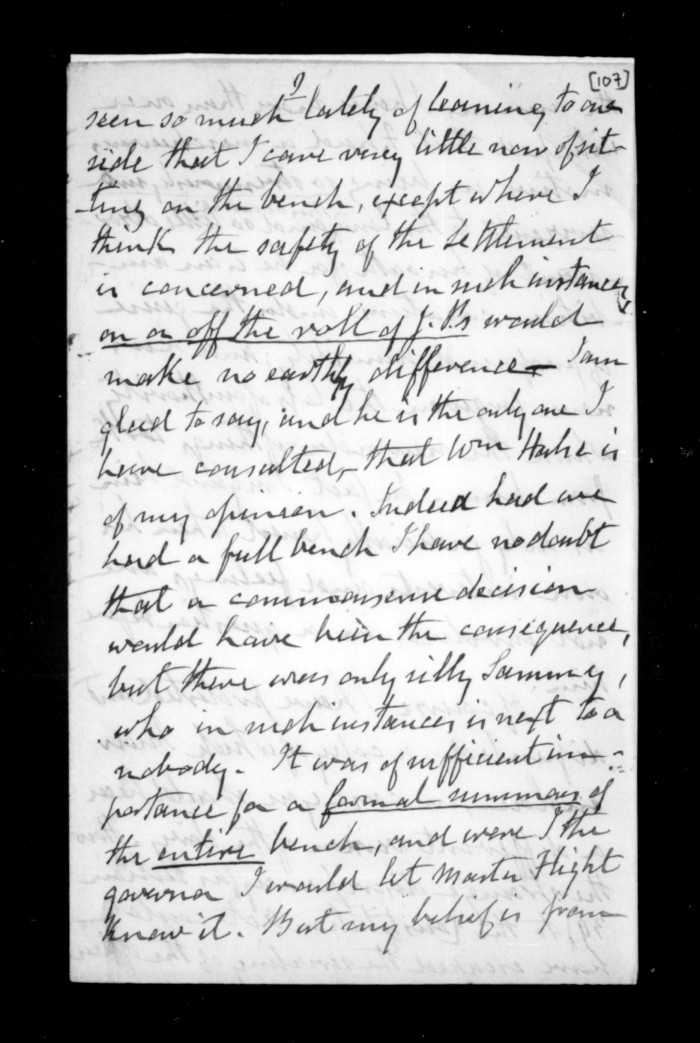 [107]
2
seen so much lately of leaning to one
side that I care very little now of sit-
-ting on the bench, except where I
think the safety of the Settlement
is concerned, and in such instances
on or off the roll of J.P.s would
make no earthly difference – I am
glad to say, and he is the only one I
have consulted, that Wm Halse is
of my opinion. Indeed had we
had a full bench I have no doubt
that a commonsense decision
would have been the consequence,
but there was only silly Sammy,
who in such instances is next to a
nobody. It was of sufficient im-
portance for a formal summons of
the entire bench, and were I the
governor I would let Master Flight
know it. But my belief is from